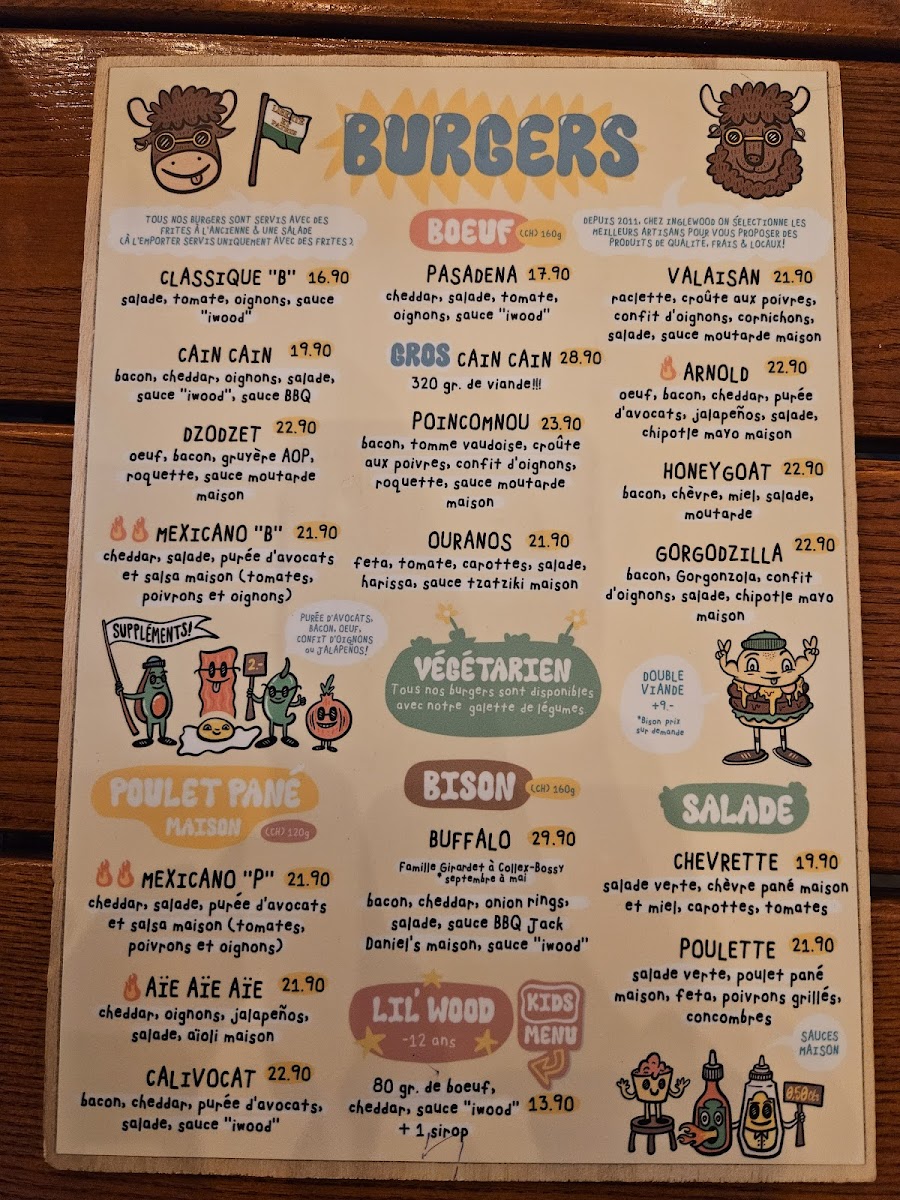 LIBERTÉ
ET
PATRIE
BURGERS
TOUS NOS BURGERS SONT SERVIS AVEC DES
FRITES À L'ANCIENNE & UNE SALADE
(À L'EMPORTER SERVIS UNIQUEMENT AVEC DES FRITES).
BOEUF (CH) 160g
DEPUIS 2011, CHEZ INGLEWOOD ON SÉLECTIONNE LES
MEILLEURS ARTISANS POUR VOUS PROPOSER DES
PRODUITS DE QUALITÉ, FRAIS & LOCAUX!
CLASSIQUE "B" 16.90
salade, tomate, oignons, sauce
"iwood"
CAIN CAIN 19.90
bacon, cheddar, oignons, salade,
sauce "iwood", sauce BBQ
DZODZET 22.90
oeuf, bacon, gruyère AOP,
roquette, sauce moutarde
maison
MEXICANO "B" 21.90
cheddar, salade, purée d'avocats
et salsa maison (tomates,
poivrons et oignons)
PASADENA 17.90
cheddar, salade, tomate,
oignons, sauce "iwood"
GROS CAIN CAIN 28.90
320 gr. de viande!!!
POINCOMNOU 23.90
bacon, tomme vaudoise, croûte
aux poivres, confit d'oignons,
roquette, sauce moutarde
maison
OURANOS 21.90
feta, tomate, carottes, salade,
harissa, sauce tzatziki maison
VALAISAN 21.90
raclette, croûte aux poivres,
confit d'oignons, cornichons,
salade, sauce moutarde maison
ARNOLD 22.90
oeuf, bacon, cheddar, purée
d'avocats, jalapeños, salade,
chipotle mayo maison
HONEYGOAT 22.90
bacon, chèvre, miel, salade,
moutarde
GORGODZILLA 22.90
bacon, Gorgonzola, confit
d'oignons, salade, chipotle mayo
maison
SUPPLÉMENTS!
PURÉE D'AVOCATS,
BACON, OEUF,
CONFIT D'OIGNONS
ou JALAPEÑOS!
2.-
VÉGÉTARIEN
Tous nos burgers sont disponibles
avec notre galette de légumes.
DOUBLE
VIANDE
+9.-
*Bison prix
sur demande
POULET PANÉ
MAISON (CH) 120g
MEXICANO "P" 21.90
cheddar, salade, purée d'avocats
et salsa maison (tomates,
poivrons et oignons)
AÏE AÏE AÏE 21.90
cheddar, oignons, jalapeños,
salade, aïoli maison
CALIVOCAT 22.90
bacon, cheddar, purée d'avocats,
salade, sauce "iwood"
BISON (CH) 160g
BUFFALO 29.90
Famille Girardet à Collex-Bossy
*septembre à mai
bacon, cheddar, onion rings,
salade, sauce BBQ Jack
Daniel's maison, sauce "iwood"
LIL' WOOD
-12 ans
KIDS
MENU
80 gr. de boeuf,
cheddar, sauce "iwood" 13.90
+ 1 sirop
SALADE
CHEVRETTE 19.90
salade verte, chèvre pané maison
et miel, carottes, tomates
POULETTE 21.90
salade verte, poulet pané
maison, feta, poivrons grillés,
concombres
SAUCES
MAISON